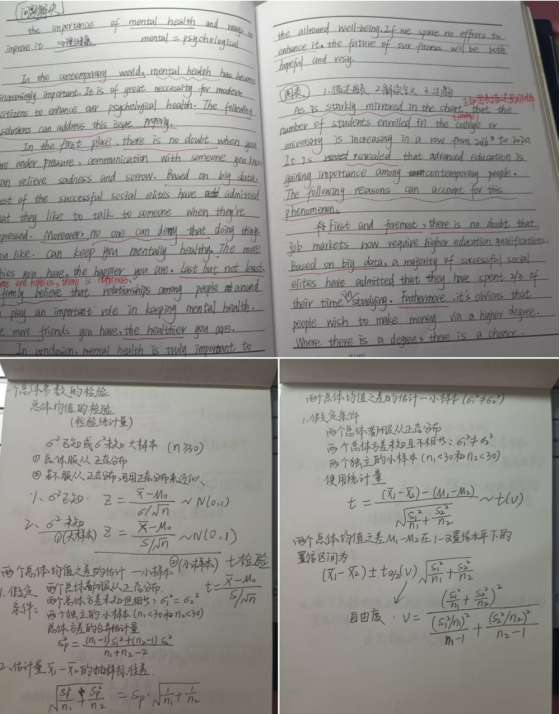 问题解决
the importance of mental health and ways to
improve it 心理健康 mental = psychological
In the contemporary world, mental health has become
increasingly important. It is of great necessity for modern
citizens to enhance our psychological health. The following
solutions can address this issue properly.
In the first place, there is no doubt when you
are under pressure, communication with someone you trust
can relieve sadness and sorrow. Based on big data,
most of the successful social elites have admitted
that they like to talk to someone when they're
depressed. Moreover, no one can deny that doing things
you like can keep you mentally healthy. The more
hobbies you have, the happier you are. Last but not least,
there are hobbies, there is happiness.
firmly believe that relationships among people around
play an important role in keeping mental health.
The more friends you have, the healthier you are.
In conclusion, mental health is truly important to
the allround well-being. If we spare no efforts to
enhance it, the future of our fitness will be both
hopeful and rosy.
图表 1.描述图表 2.解读含义 3.
As is starkly mirrored in the chart, that the
number of students enrolled in the college or
university is increasing in a row from 2016 to 2020.
It is revealed that advanced education is
gaining importance among contemporary people.
The following reasons can account for this
phenomenon.
First and foremost, there is no doubt that
job markets now require higher education qualifications.
Based on big data, a majority of successful social
elites have admitted that they have spent 2/3 of
their time in studying. Futhermore, it's obvious that
people wish to make money via a higher degree.
Where there is a degree, there is a chance.
个总体参数的检验
总体均值的检验
(检验统计量)
σ²已知或σ²未知大样本 (n≥30)
① 总体服从正态分布
② 若不服从正态分布,可用正态分布来近似
1、σ²已知. Z = (x̄-μ₀)/(σ/√n) ~ N(0,1)
2、σ²未知 (大样本) Z = (x̄-μ₀)/(s/√n) ~ N(0,1)
②(小样本) t检验
t = (x̄-μ₀)/(s/√n)
两个总体均值之差的估计—小样本
1.假定条件: 两个总体都服从正态分布
两个总体方差未知但相等: σ₁²=σ₂²
两个独立的小样本 (n₁<30和n₂<30)
总体方差的合并估计量
Sp² = ((n₁-1)S₁²+(n₂-1)S₂²)/(n₁+n₂-2)
2.估计量 x̄₁-x̄₂的抽样标准差
√(Sp²/n₁ + Sp²/n₂) = Sp·√(1/n₁ + 1/n₂)
两个总体均值之差的估计—小样本 (σ₁²≠σ₂²)
1.假定条件
两个总体都服从正态分布
两个总体方差未知且不相等: σ₁²≠σ₂²
两个独立的小样本 (n₁<30和n₂<30)
使用统计量
t = ((x̄₁-x̄₂)-(μ₁-μ₂))/√(S₁²/n₁ + S₂²/n₂) ~ t(v)
两个总体均值之差μ₁-μ₂在1-α置信水平下的
置信区间为
(x̄₁-x̄₂) ± t α/2(v) √(S₁²/n₁ + S₂²/n₂)
自由度. v = (S₁²/n₁ + S₂²/n₂)² / ((S₁²/n₁)²/(n₁-1) + (S₂²/n₂)²/(n₂-1))